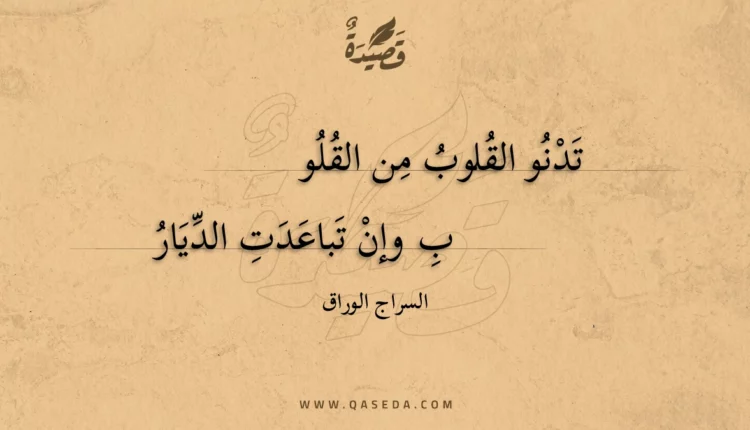 قَصِيْدَةٌ
تَدْنُو القُلوبُ مِن القُلُو
بِ وإنْ تَباعَدَتِ الدِّيَارُ
السراج الوراق
WWW.QASEDA.COM